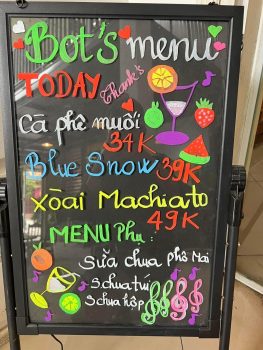 Bot's menu
TODAY
Thank's
Cà phê muối
34K
Blue Snow 39K
Xòai Machiato
49K
MENU Phụ:
Sữa chua phô Mai
S.chua túi
S chua hộp